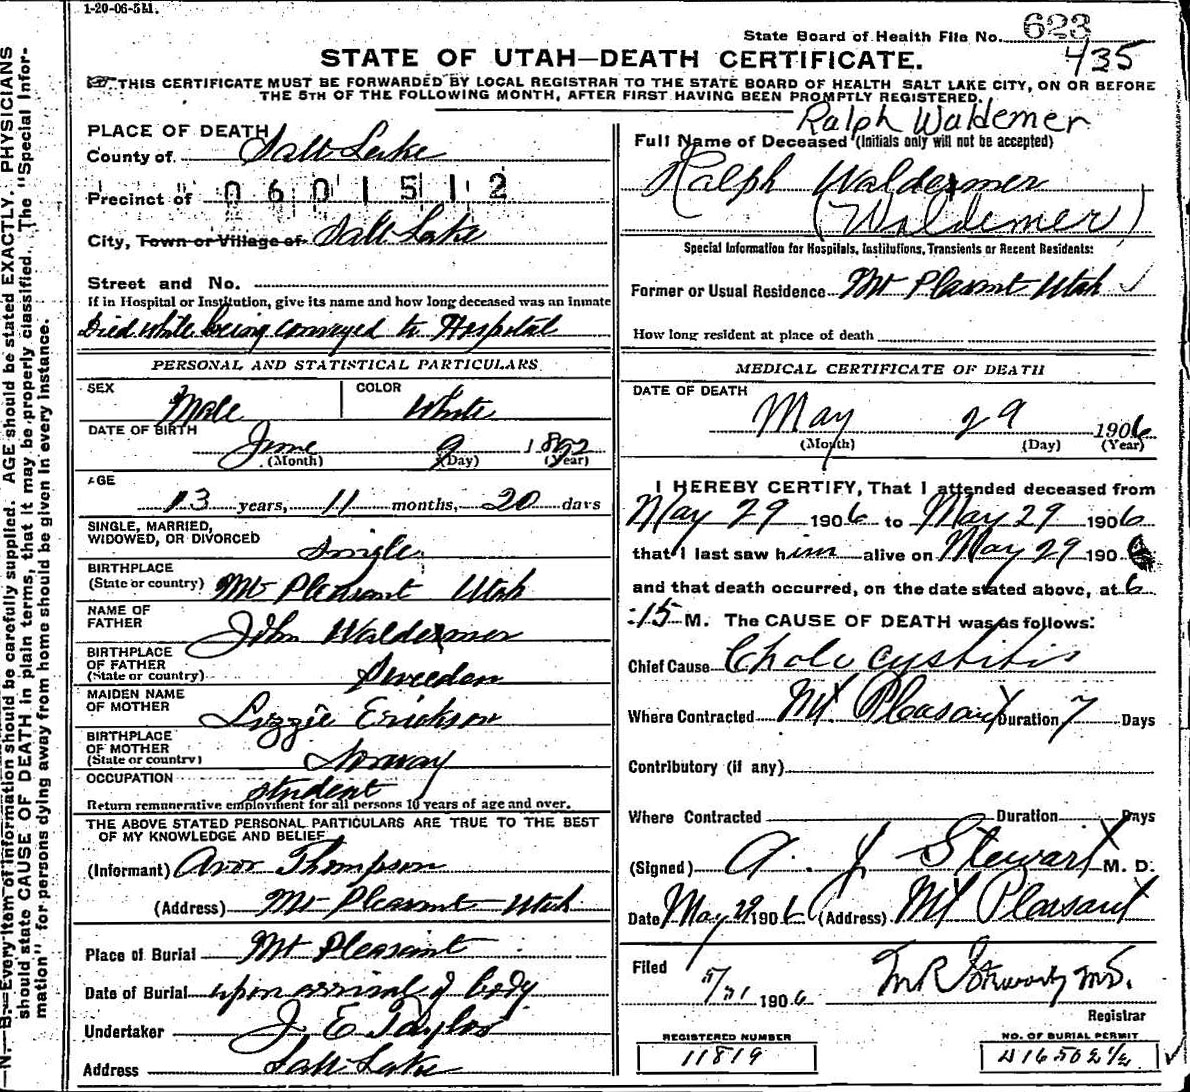 1-20-06-5M.
State Board of Health File No. 623
435
STATE OF UTAH—DEATH CERTIFICATE.
THIS CERTIFICATE MUST BE FORWARDED BY LOCAL REGISTRAR TO THE STATE BOARD OF HEALTH SALT LAKE CITY, ON OR BEFORE
THE 5TH OF THE FOLLOWING MONTH, AFTER FIRST HAVING BEEN PROMPTLY REGISTERED.
N. B.—Every item of information should be carefully supplied. AGE should be stated EXACTLY. PHYSICIANS
should state CAUSE OF DEATH in plain terms, that it may be properly classified. The "Special Infor-
mation" for persons dying away from home should be given in every instance.
PLACE OF DEATH
County of Salt Lake
Precinct of 0601512
City, Town or Village of Salt Lake
Street and No.
If in Hospital or Institution, give its name and how long deceased was an inmate
Died while being conveyed to Hospital
PERSONAL AND STATISTICAL PARTICULARS
SEX Male COLOR White
DATE OF BIRTH June 9 1892
(Month) (Day) (Year)
AGE
13 years, 11 months, 20 days
SINGLE, MARRIED,
WIDOWED, OR DIVORCED Single
BIRTHPLACE
(State or country) Mt Pleasant Utah
NAME OF
FATHER John Waldermer
BIRTHPLACE
OF FATHER
(State or country) Sweedan
MAIDEN NAME
OF MOTHER Lizzie Erickson
BIRTHPLACE
OF MOTHER
(State or country) Norway
OCCUPATION student
Return remunerative employment for all persons 10 years of age and over.
THE ABOVE STATED PERSONAL PARTICULARS ARE TRUE TO THE BEST
OF MY KNOWLEDGE AND BELIEF
(Informant) Thompson
(Address) Mt Pleasant Utah
Place of Burial Mt Pleasant
Date of Burial upon arrival of body
Undertaker J. E Taylor
Address Salt Lake
Ralph Waldemer
Full Name of Deceased (Initials only will not be accepted)
Ralph Waldermer
(Waldemer)
Special Information for Hospitals, Institutions, Transients or Recent Residents:
Former or Usual Residence Mt Pleasant Utah
How long resident at place of death
MEDICAL CERTIFICATE OF DEATH
DATE OF DEATH
May 29 1906
(Month) (Day) (Year)
I HEREBY CERTIFY, That I attended deceased from
May 29 1906 to May 29 1906
that I last saw him alive on May 29 1906
and that death occurred, on the date stated above, at 6
:15 M. The CAUSE OF DEATH was as follows:
Chief Cause Chole cystitis
Where Contracted Mt Pleasant Duration 7 Days
Contributory (if any)
Where Contracted Duration Days
(Signed) A. J. Stewart M. D.
Date May 29 1906 (Address) Mt Pleasant
Filed 5/31 1906 M.D.
Registrar
REGISTERED NUMBER
11819
NO. OF BURIAL PERMIT
A16502½